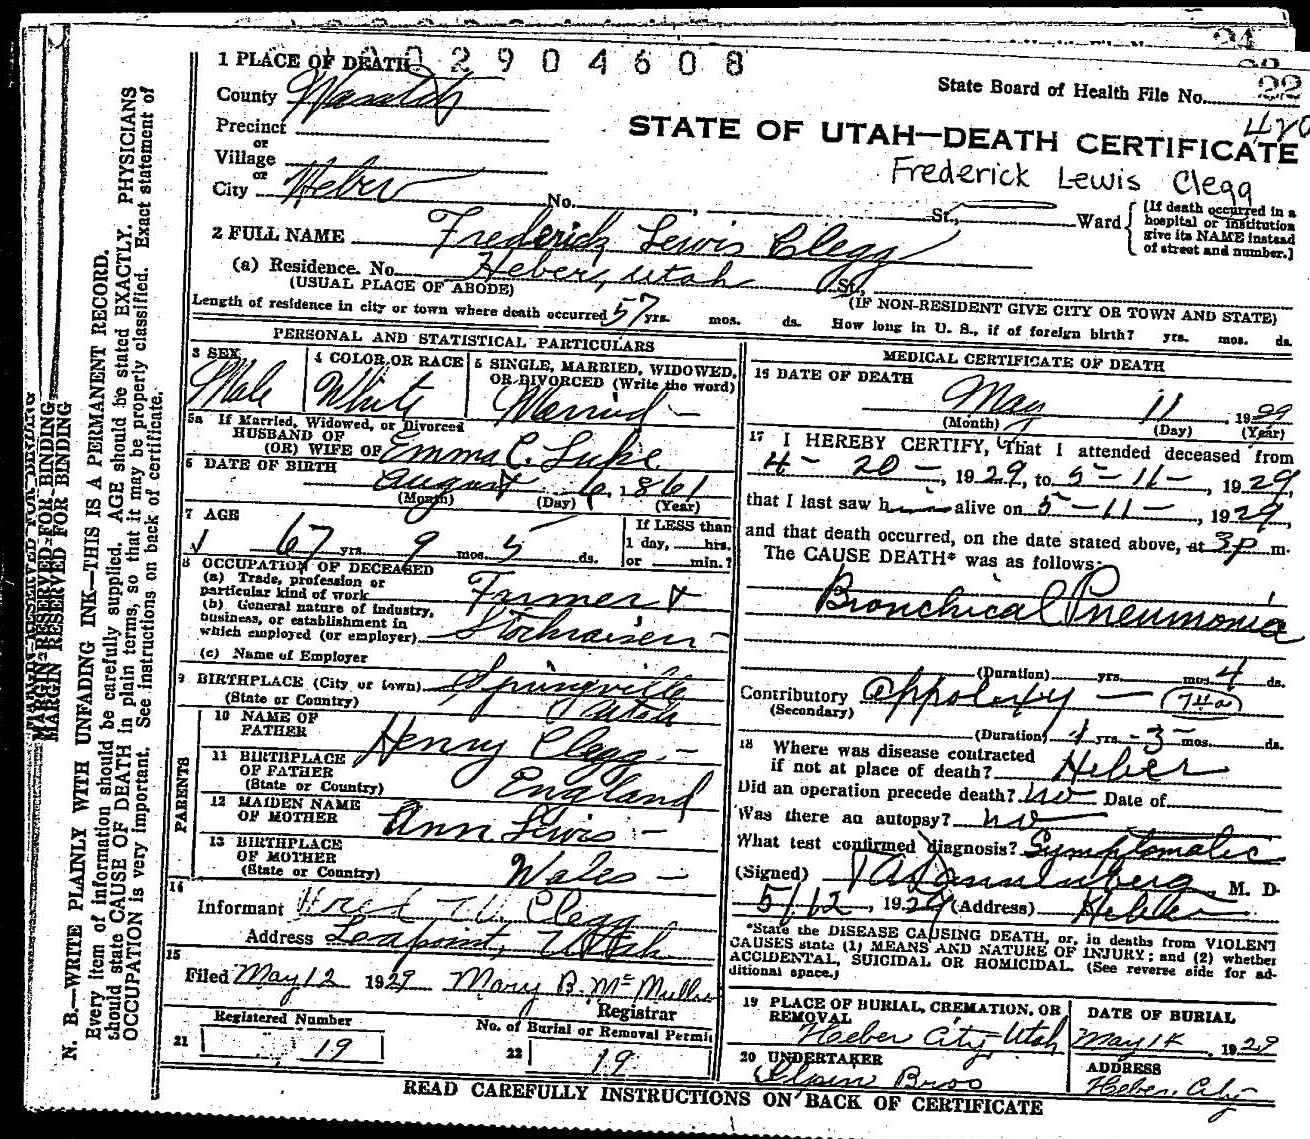 1 PLACE OF DEATH
2904608
State Board of Health File No. 22
County Wasatch
Precinct
or
Village
or
City Heber No. St., Ward
STATE OF UTAH—DEATH CERTIFICATE
Frederick Lewis Clegg
[If death occurred in a
hospital or institution
give its NAME instead
of street and number.]
2 FULL NAME Frederick Lewis Clegg
(a) Residence. No. Heber, Utah St.,
(USUAL PLACE OF ABODE)
(IF NON-RESIDENT GIVE CITY OR TOWN AND STATE)
Length of residence in city or town where death occurred 57 yrs. mos. ds. How long in U. S., if of foreign birth? yrs. mos. ds.
PERSONAL AND STATISTICAL PARTICULARS
3 SEX Male
4 COLOR OR RACE White
5 SINGLE, MARRIED, WIDOWED,
OR DIVORCED (Write the word)
Married —
5a If Married, Widowed, or Divorced
HUSBAND OF
(OR) WIFE OF Emma C. Luke
6 DATE OF BIRTH
August 6, 1861
(Month) (Day) (Year)
7 AGE
67 yrs. 9 mos. 5 ds.
If LESS than
1 day, hrs.
or min.?
8 OCCUPATION OF DECEASED
(a) Trade, profession or
particular kind of work Farmer &
(b) General nature of industry,
business, or establishment in
which employed (or employer) Stockraiser —
(c) Name of Employer
9 BIRTHPLACE (City or town) Springville
(State or Country) Utah
PARENTS
10 NAME OF
FATHER Henry Clegg —
11 BIRTHPLACE
OF FATHER
(State or Country) England
12 MAIDEN NAME
OF MOTHER Ann Lewis —
13 BIRTHPLACE
OF MOTHER
(State or Country) Wales —
14
Informant Clegg
Address Leapoint, Utah
15
Filed May 12 1929 Mary B. McMullin
Registrar
Registered Number
21 19
No. of Burial or Removal Permit
22 19
MEDICAL CERTIFICATE OF DEATH
16 DATE OF DEATH
May 11 1929
(Month) (Day) (Year)
17 I HEREBY CERTIFY, That I attended deceased from
4 - 20 -, 1929, to 5 - 11 -, 1929,
that I last saw him alive on 5 - 11 -, 1929,
and that death occurred, on the date stated above, at 3 P m.
The CAUSE DEATH* was as follows:
Bronchical Pneumonia
(Duration) yrs. mos. 4 ds.
Contributory Appoloxy — (74a)
(Secondary)
(Duration) 1 yrs. - 3 - mos. ds.
18 Where was disease contracted
if not at place of death? Heber
Did an operation precede death? No Date of
Was there an autopsy? no
What test confirmed diagnosis? Symptomatic
(Signed) Dannenberg, M. D.
5/12, 1929 (Address) Heber
*State the DISEASE CAUSING DEATH, or, in deaths from VIOLENT
CAUSES state (1) MEANS AND NATURE OF INJURY; and (2) whether
ACCIDENTAL, SUICIDAL OR HOMICIDAL. (See reverse side for ad-
ditional space.)
19 PLACE OF BURIAL, CREMATION, OR
REMOVAL
Heber City, Utah
DATE OF BURIAL
May 14, 1929
20 UNDERTAKER
Bros
ADDRESS
Heber City
READ CAREFULLY INSTRUCTIONS ON BACK OF CERTIFICATE
MARGIN RESERVED FOR BINDING
N. B.—WRITE PLAINLY WITH UNFADING INK—THIS IS A PERMANENT RECORD.
Every item of information should be carefully supplied. AGE should be stated EXACTLY. PHYSICIANS
should state CAUSE OF DEATH in plain terms, so that it may be properly classified. Exact statement of
OCCUPATION is very important. See instructions on back of certificate.